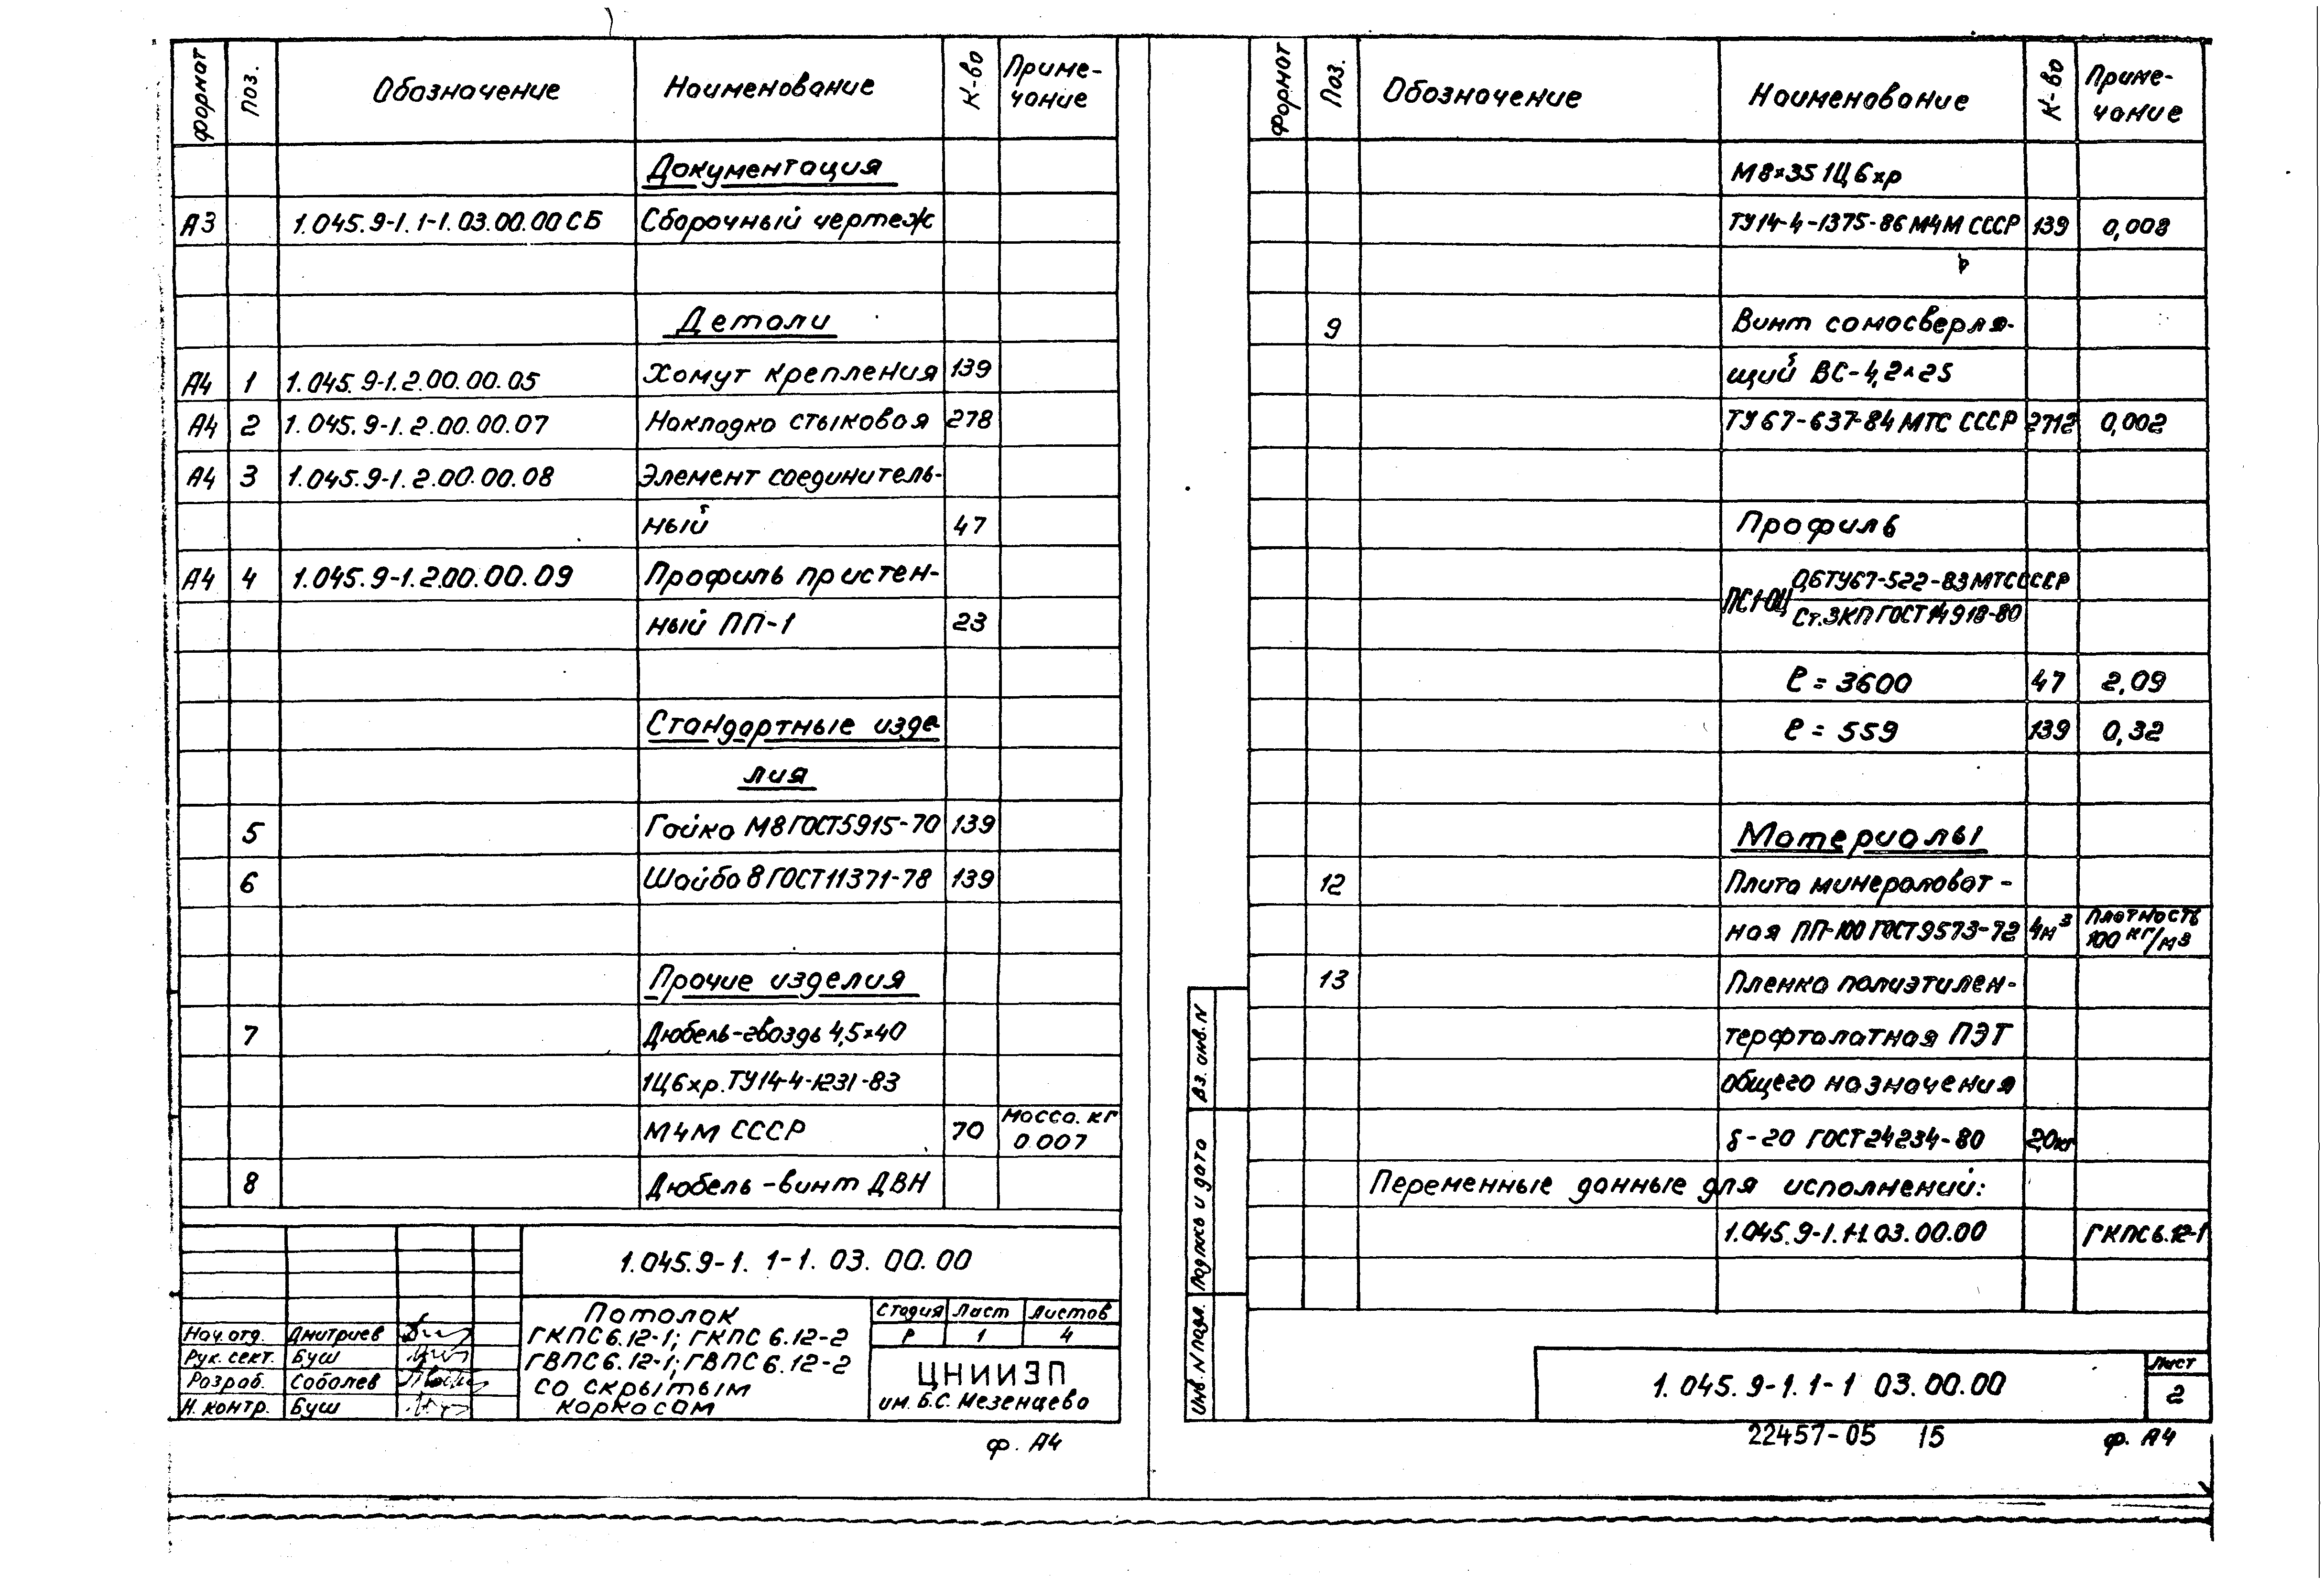 Формат Поз. Обозначение Наименование К-во Приме-
чание
Документация
А3 1.045.9-1.1-1.03.00.00 СБ Сборочный чертеж
Детали
А4 1 1.045.9-1.2.00.00.05 Хомут крепления 139
А4 2 1.045.9-1.2.00.00.07 Накладка стыковая 278
А4 3 1.045.9-1.2.00.00.08 Элемент соединитель-
ный 47
А4 4 1.045.9-1.2.00.00.09 Профиль пристен-
ный ПП-1 23
Стандартные изде
лия
5 Гайка М8 ГОСТ 5915-70 139
6 Шайба 8 ГОСТ 11371-78 139
Прочие изделия
7 Дюбель-гвоздь 4,5×40
1Ц6хр. ТУ14-4-1231-83
МЧМ СССР 70 Масса. кг
0.007
8 Дюбель-винт ДВН
1.045.9-1. 1-1. 03. 00. 00
Потолок
ГКПС 6.12-1; ГКПС 6.12-2
ГВПС 6.12-1; ГВПС 6.12-2
со скрытым
каркасом
Стадия Лист Листов
Р 1 4
ЦНИИЭП
им. Б.С. Мезенцева
Нач. отд. Дмитриев
Рук. сект. Буш
Разраб. Соболев
Н. контр. Буш
ф. А4
Формат Поз. Обозначение Наименование К-во Приме-
чание
М8×35 1Ц6хр
ТУ14-4-1375-86 МЧМ СССР 139 0,008
9 Винт самосверля-
щий ВС-4,2×25
ТУ67-637-84 МТС СССР 2712 0,002
Профиль
ПС1-0Ц 0,6ТУ67-522-83 МТС СССР
Ст.3КП ГОСТ 14918-80
ℓ = 3600 47 2,09
ℓ = 559 139 0,32
Материалы
12 Плита минераловат-
ная ПП-100 ГОСТ 9573-72 4м³ Плотность
100 кг/м3
13 Пленка полиэтилен-
терфталатная ПЭТ
общего назначения
δ-20 ГОСТ 24234-80 2,0кг
Переменные данные для исполнений:
1.045.9-1.1-1.03.00.00 ГКПС 6.12-1
Вз. инв. N
Подпись и дата
Инв. N подл.
1.045.9-1.1-1 03.00.00
Лист
2
22457-05 15
ф. А4